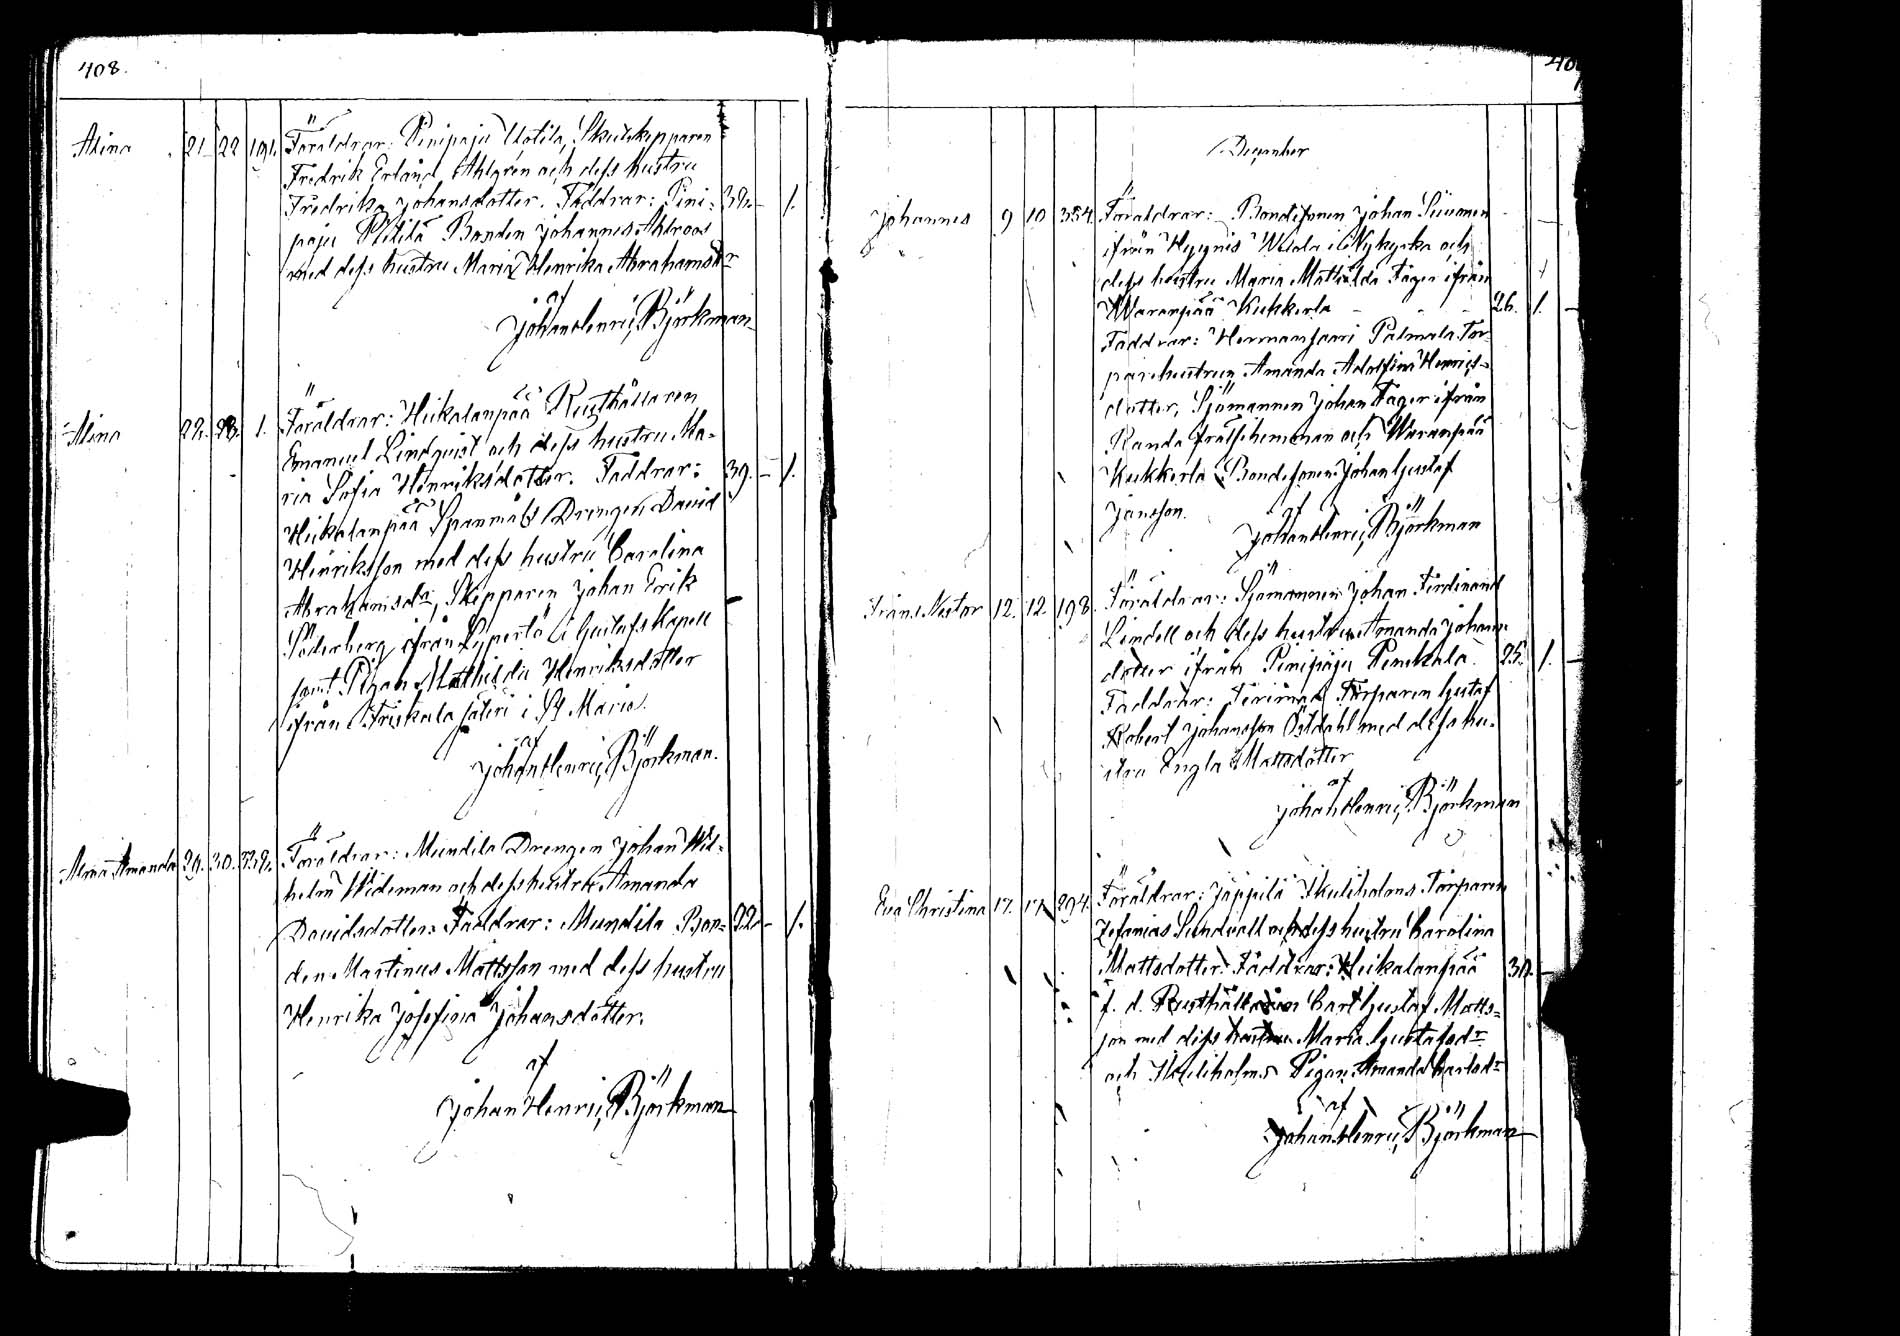 408.
Alina 21 22 191. Föräldrar: Pinipaju Uotila, Skutskepparen
Fredrik Erland Ahlgrén och dess hustru
Fredrika Johansdotter. Faddrar: Pini- 32. - 1.
paju Bonden Johannes Ahlroos
med dess hustru Maria Henrika Abrahamsdr
af
Johan Henric Björkman
Alina 22. 23. 1. Föräldrar: Heikalanpää Rusthållaren
Emanuel Lindqvist och dess hustru Ma-
ria Sofia Henriksdotter. Faddrar: 39. - 1.
Heikalanpää Spanmåls Drengen David
Henriksson med dess hustru Carolina
Abrahamsdr, Skepparen Johan Erik
Söderberg ifrån Lyperlö i Gustafs Kapell
samt Pigan Mathilda Henriksdotter
ifrån Friskala säteri i St Marie.
af
Johan Henric Björkman.
Alma Amanda 29. 30. 332. Föräldrar: Mundila Drengen Johan Wil-
helm Wideman och dess hustru Amanda
Davidsdotter. Faddrar: Mundila Bon- 22. - 1.
den Martinus Mattsson med dess hustru
Henrika Josefina Johansdotter.
af
Johan Henric Björkman
December
Johannes 9 10 354. Föräldrar: Bondesonen Johan Siivonen
ifrån Wekla i Nykyrka och
dess hustru Maria Mathilda Fager ifrån
Waranpää Kukkerla 26. 1.
Faddrar: Hermansaari Palmala Tor-
parehustrun Amanda Adolfina Henriks-
dotter, Sjömannen Johan Fager ifrån
Randa frälsehemman och Waranpää
Kukkerla Bondesonen Johan Gustaf
Jansson.
af
Johan Henric Björkman
Frans Nestor 12. 12. 198. Föräldrar: Sjömannen Johan Ferdinand
Lindell och dess hustru Amanda Johans-
dotter ifrån Pinipaju Penikkala. 25. 1.
Faddrar: Torparen Gustaf
Robert Johansson Östdahl med dess hu-
stru Engla Mattsdotter
af
Johan Henric Björkman
Eva Christina 17. 17. 294. Föräldrar: Jäppilä Skuliholms Torparen
Zefanias Sundvall och dess hustru Carolina
Mattsdotter. Faddrar: Heikalanpää 30. -
f. d. Rusthållaren Carl Gustaf Matts-
son med dess hustru Maria Gustafsdr
och Skuliholms Pigan Amanda Carlsdr
af
Johan Henric Björkman